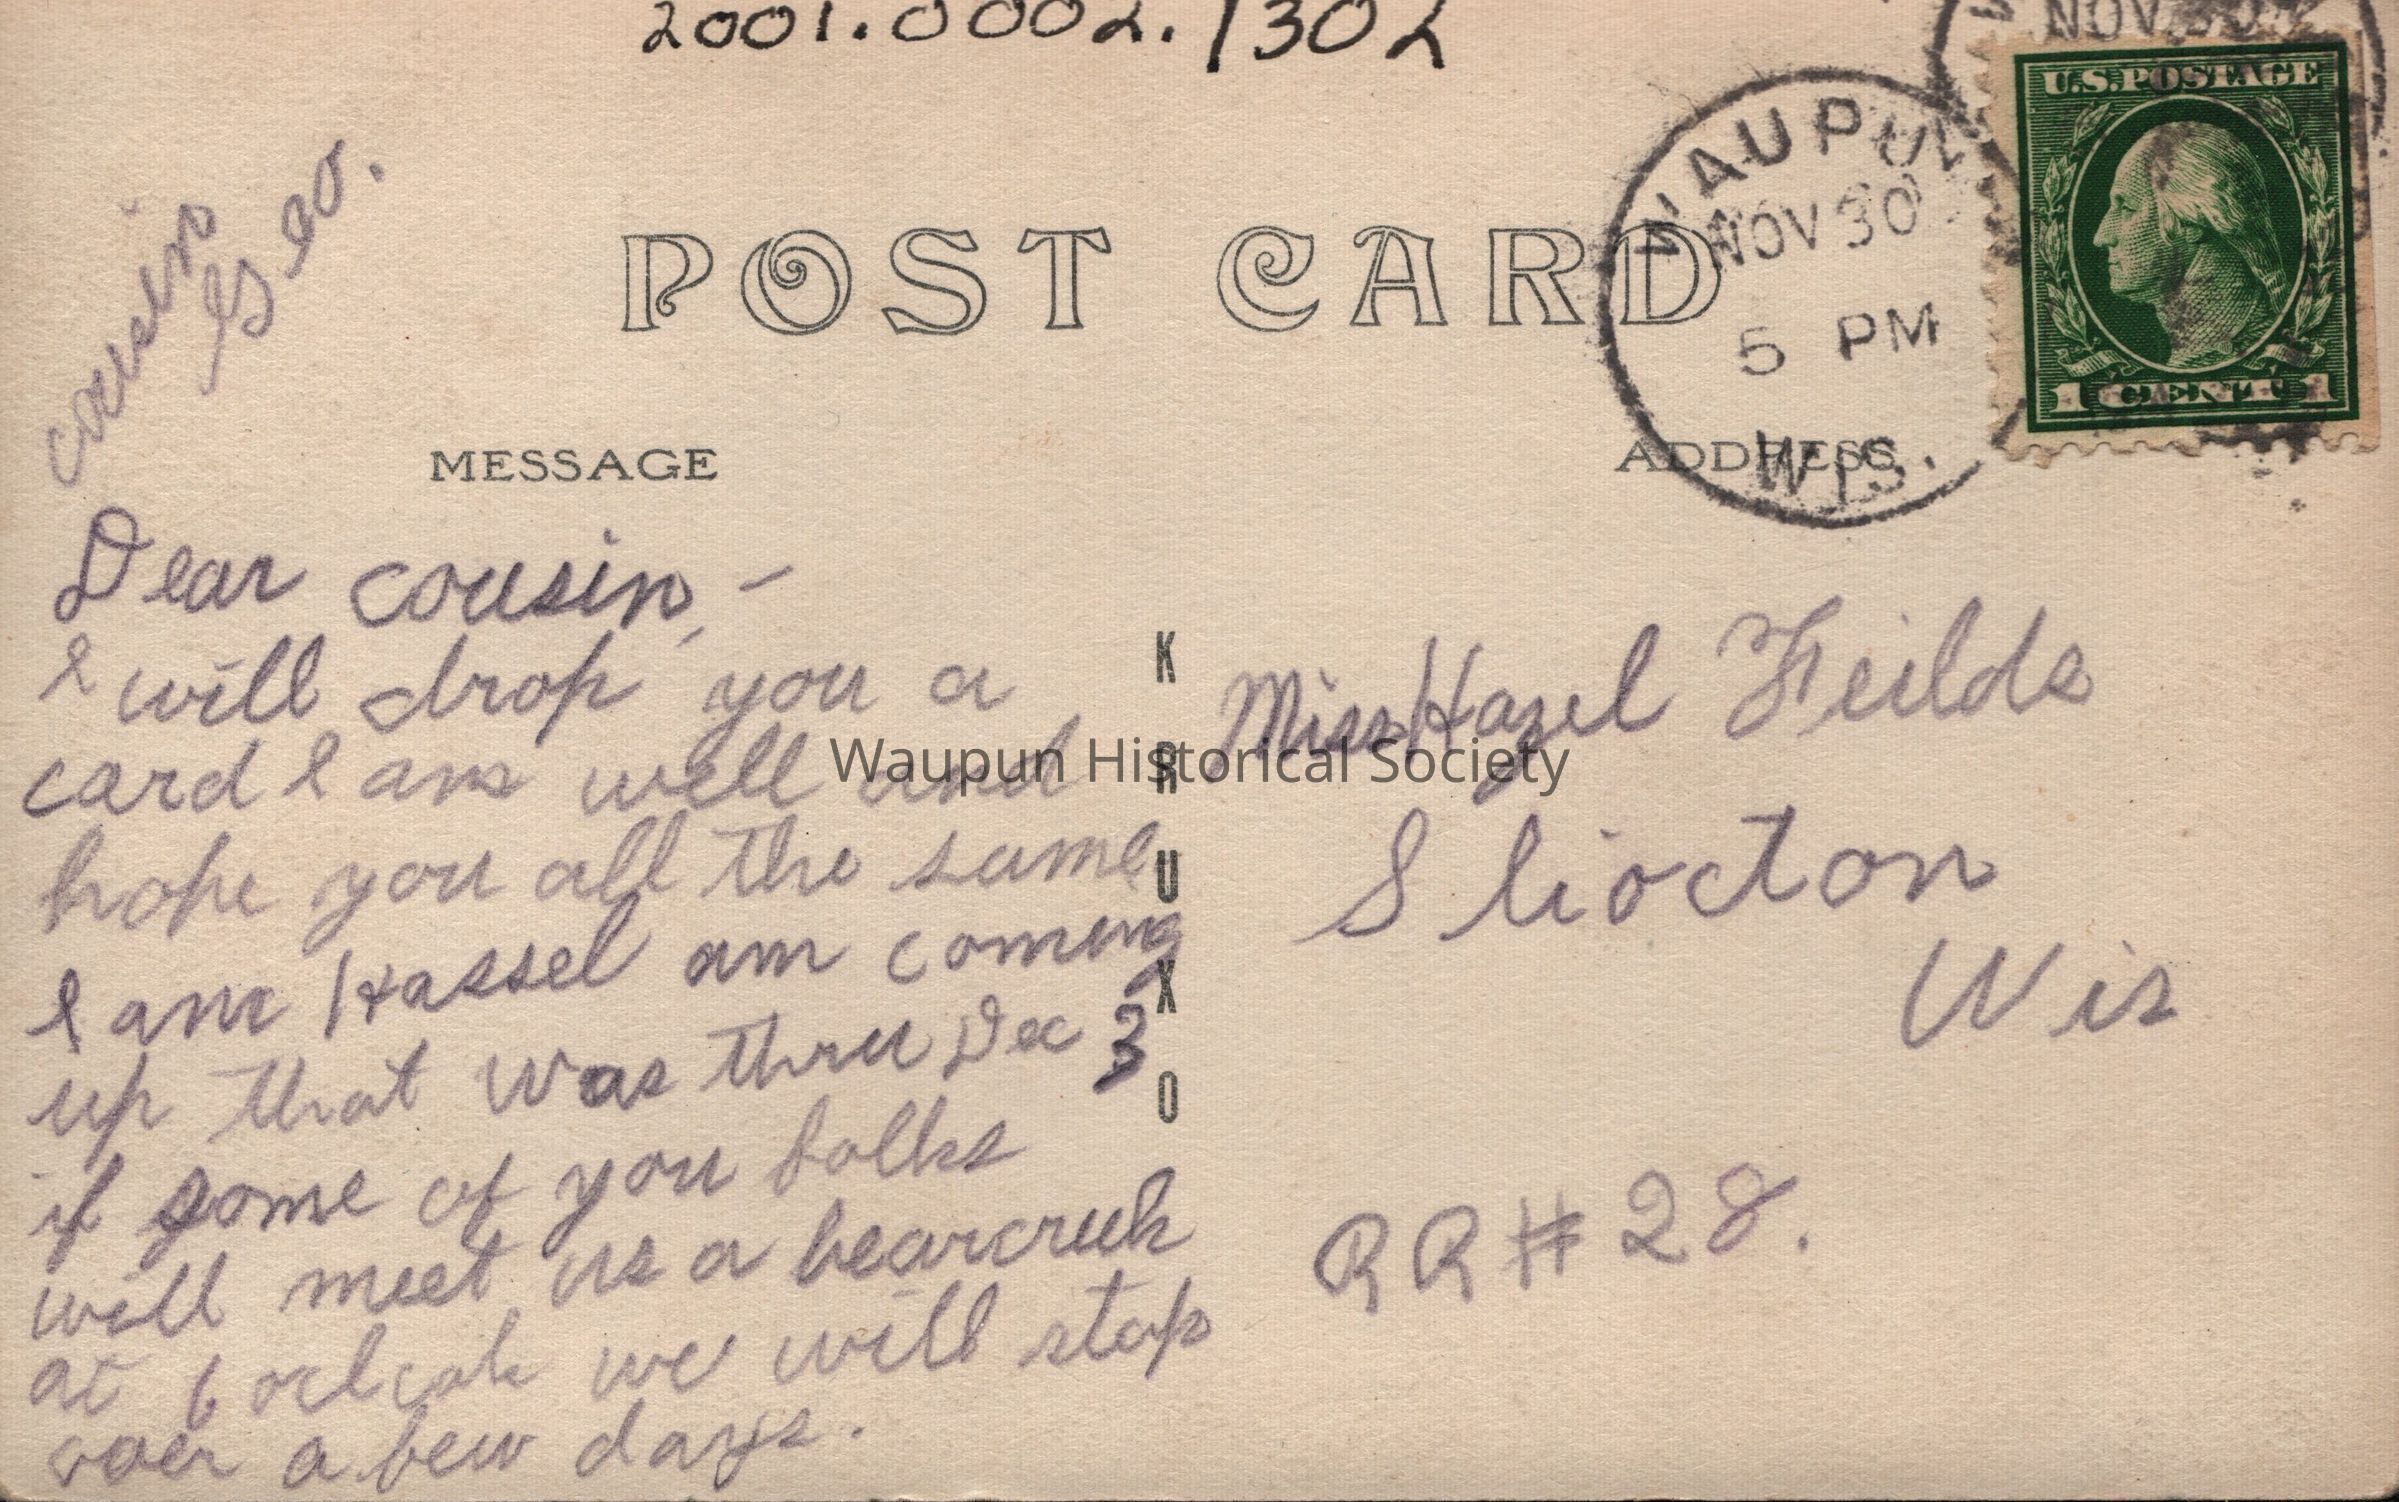 2001.0002.1302
NOV 30
U.S. POSTAGE
1 CENT 1
WAUPUN
NOV 30
5 PM
WIS.
POST CARD
MESSAGE
ADDRESS
cousin
Geo.
Dear cousin, -
I will drop you a
card I am well and
hope you all the same
I am Hassel am coming
up that was thru Dec 3
if some of you folks
will meet us a bearcreek
at 6 oclcok we will stop
over a few days.
KRUXO
Miss Hazel Feilds
Shiocton
Wis
RR # 28.
Waupun Historical Society